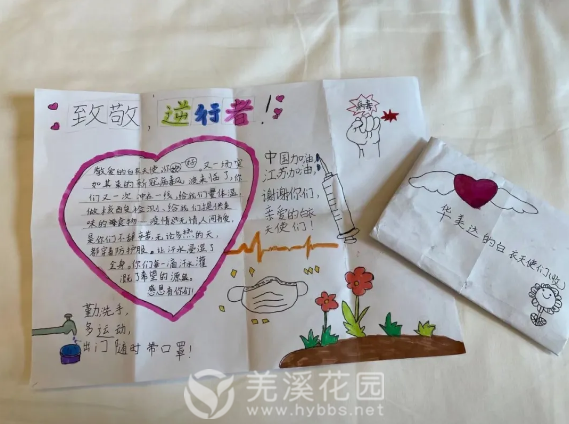 致敬，逆行者！
敬爱的白衣天使，你们好，又一场突
如其来的新冠病毒袭来临了，你
们又一次冲在一线，给我们量体温
做核酸检测，给我们提供美
味的蔬食物。疫情无情人间有爱，
是你们不辞辛苦，无论多热的天，
都穿着防护服。让汗水浸湿了
全身。你们每一滴汗水灌
溉了希望的源泉。
感恩有你们！
中国加油，
江苏加油，
谢谢你们，
亲爱的白衣
天使们！
病毒
勤洗手，
多运动，
出门随时带口罩！
华美达的白衣天使们收
羌溪花园
www.hybbs.net